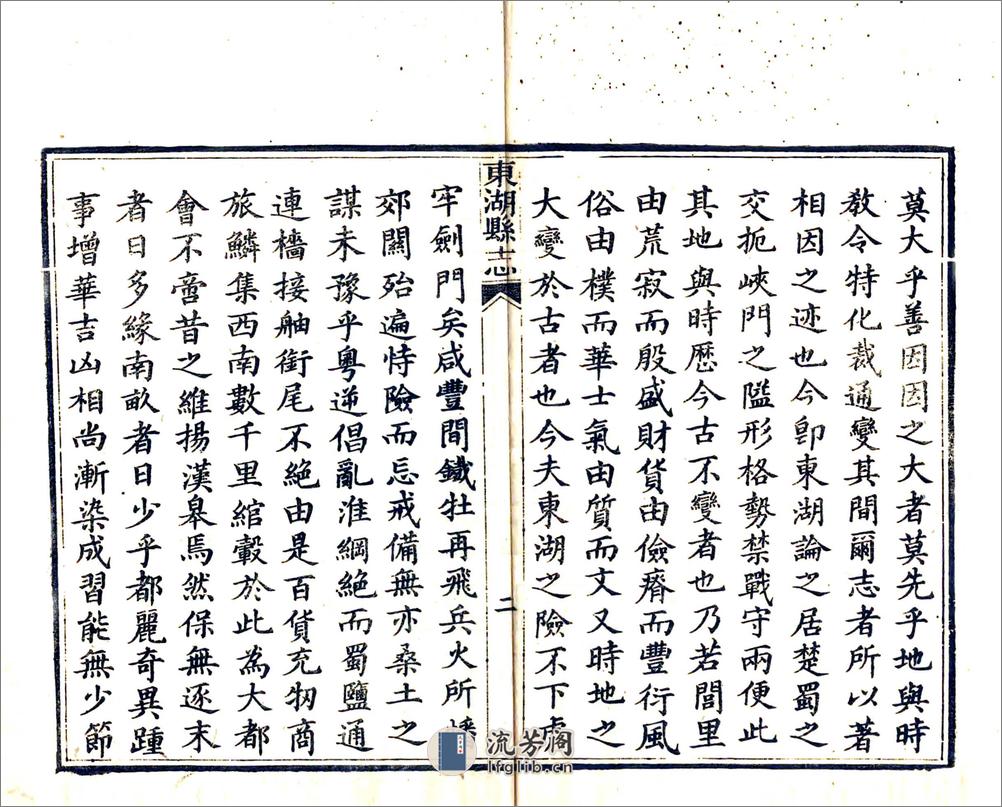 莫大乎善因因之大者莫先乎地與時
教令特化裁通變其間爾志者所以著
相因之迹也今卽東湖論之居楚蜀之
交扼峽門之隘形格勢禁戰守兩便此
其地與時歷今古不變者也乃若閭里
由荒寂而殷盛財貨由儉瘠而豐衍風
俗由樸而華士氣由質而文又時地之
大變於古者也今夫東湖之險不下虎
東湖縣志
二
牢劍門矣咸豐間鐵牡再飛兵火所
郊關殆遍恃險而忘戒備無亦桑土之
謀未豫乎粵逆倡亂淮綱絶而蜀鹽通
連檣接舳銜尾不絶由是百貨充牣商
旅鱗集西南數千里綰轂於此為大都
會不啻昔之維揚漢皋焉然保無逐末
者日多緣南畝者日少乎都麗奇異踵
事增華吉凶相尚漸染成習能無少節
流芳阁
lfglib.cn